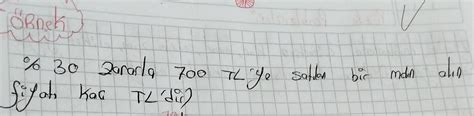 ÖRNEK
% 30 Zararla 700 TL'ye satılan bir malın alış
fiyatı kaç TL'dir